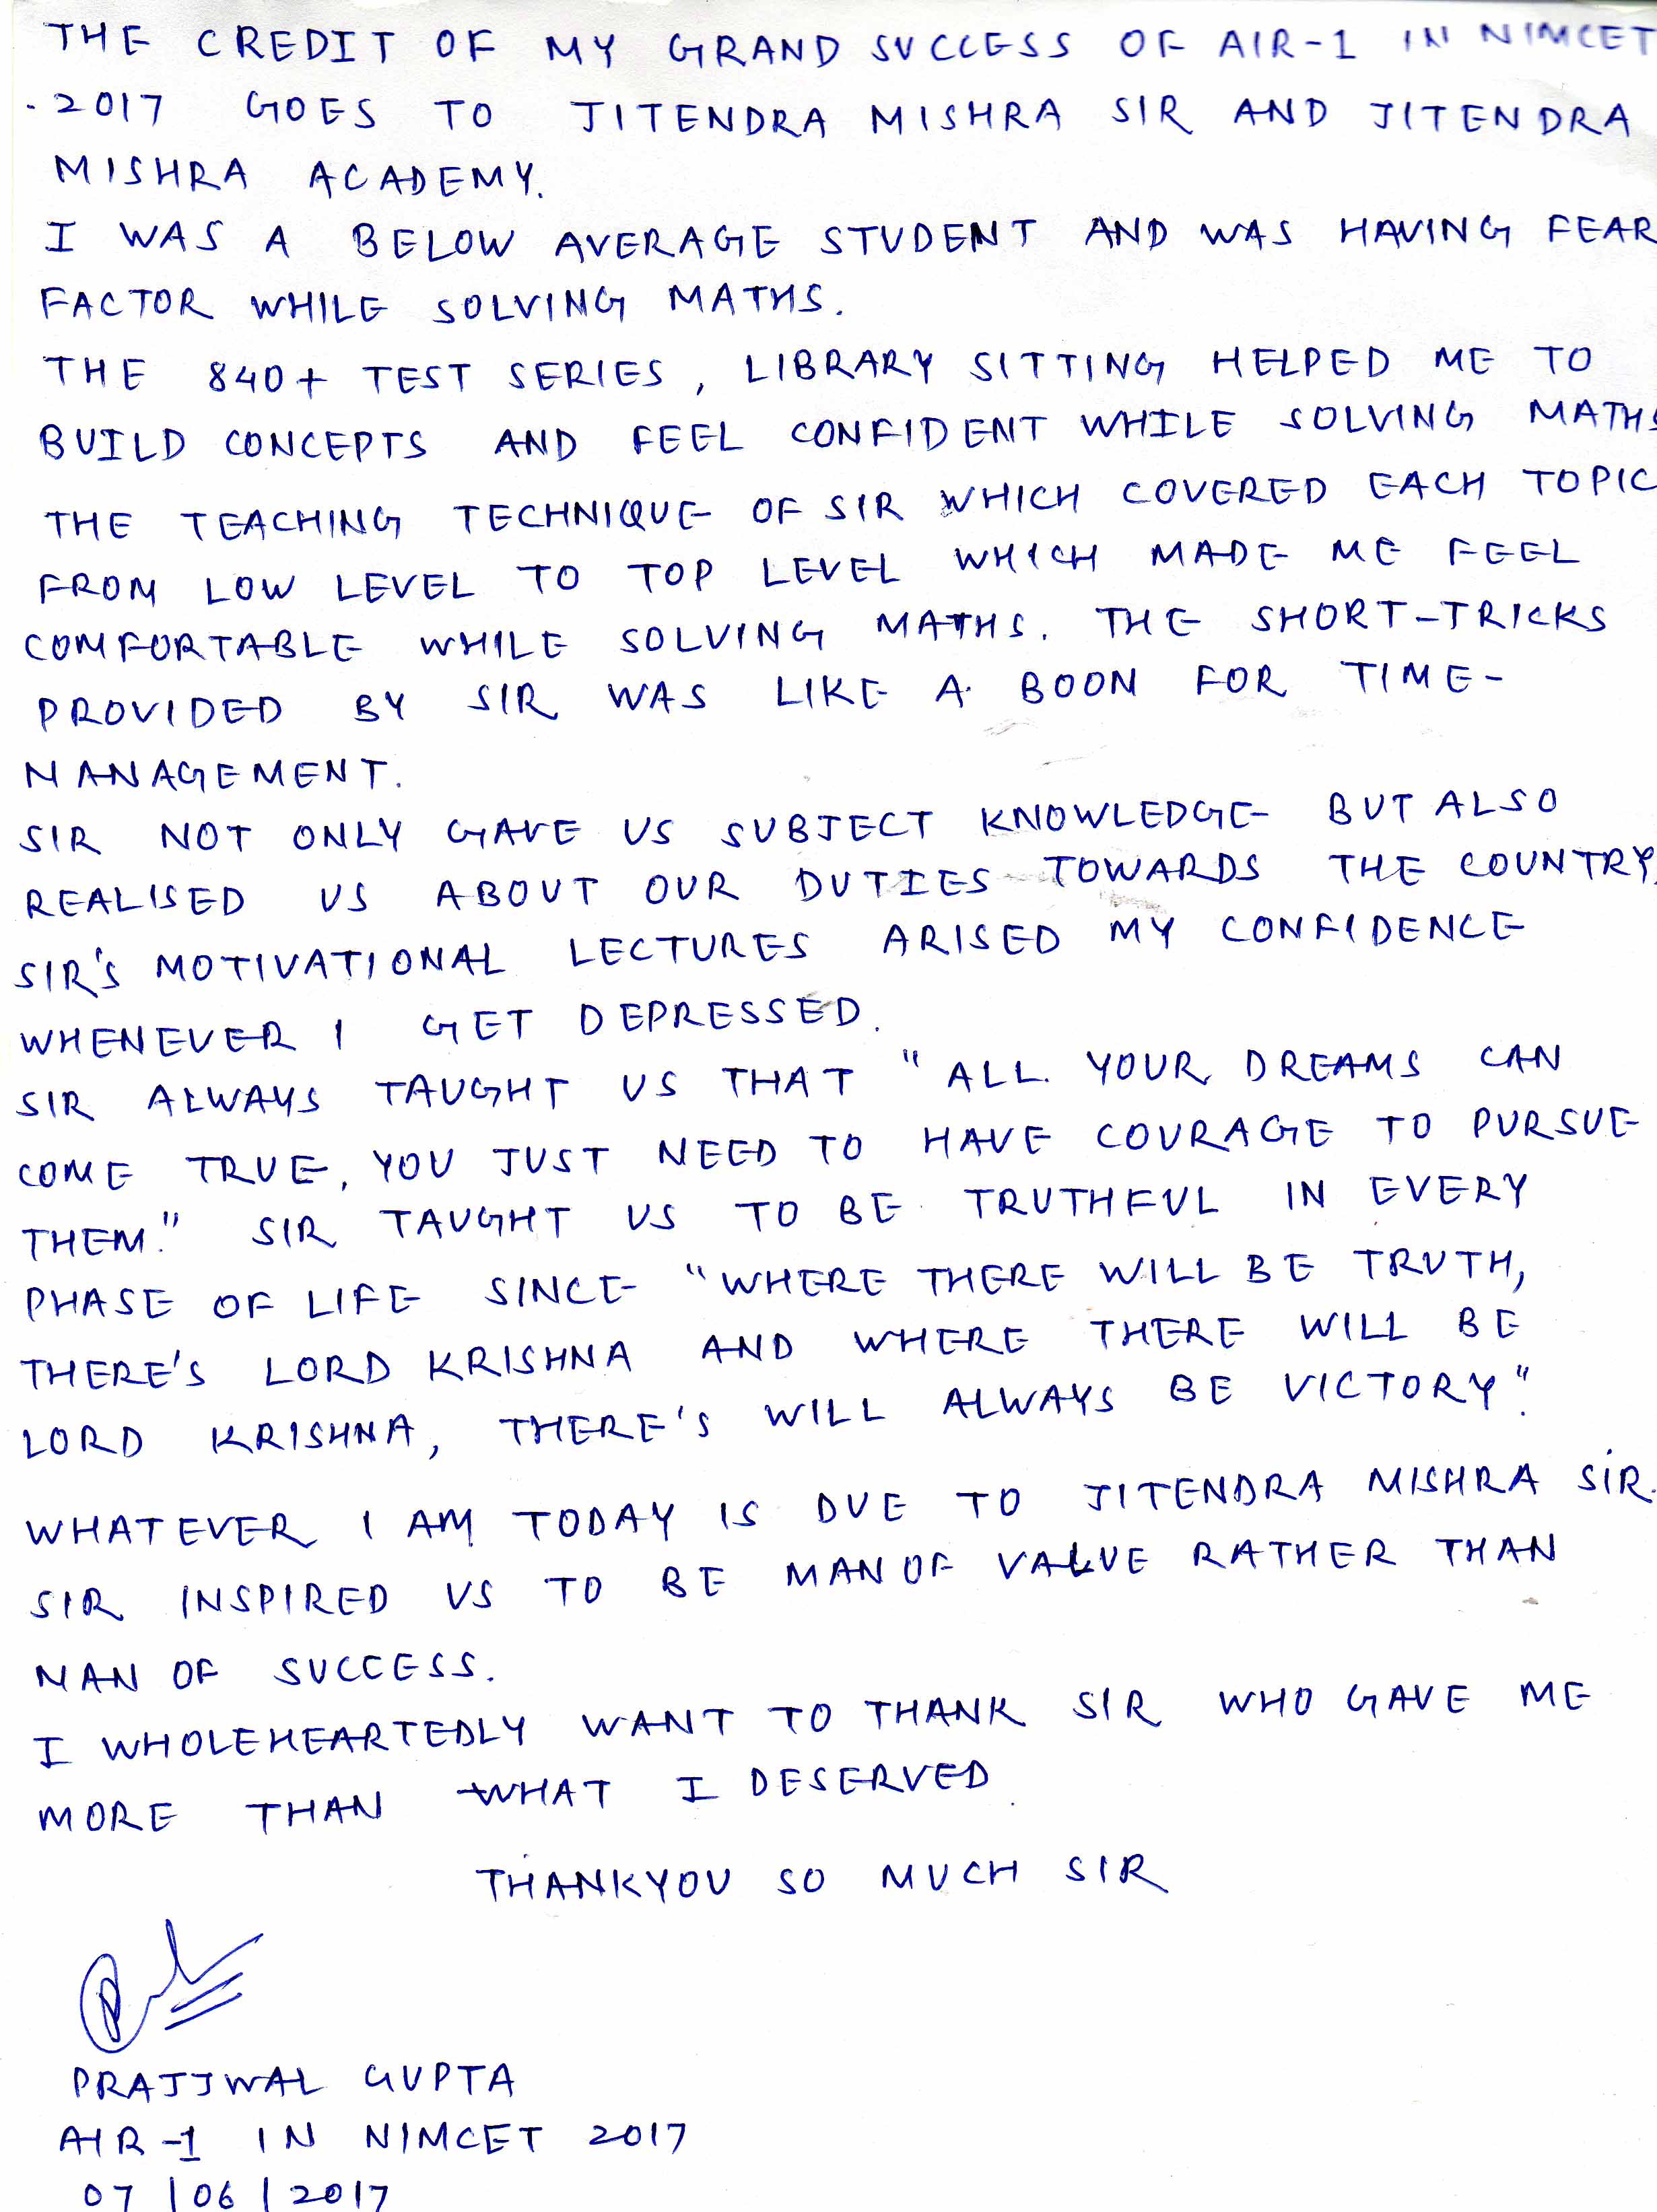 THE CREDIT OF MY GRAND SUCCESS OF AIR-1 IN NIMCET
-2017 GOES TO JITENDRA MISHRA SIR AND JITENDRA
MISHRA ACADEMY.
I WAS A BELOW AVERAGE STUDENT AND WAS HAVING FEAR
FACTOR WHILE SOLVING MATHS.
THE 840+ TEST SERIES, LIBRARY SITTING HELPED ME TO
BUILD CONCEPTS AND FEEL CONFIDENT WHILE SOLVING MATHS
THE TEACHING TECHNIQUE OF SIR WHICH COVERED EACH TOPIC
FROM LOW LEVEL TO TOP LEVEL WHICH MADE ME FEEL
COMFORTABLE WHILE SOLVING MATHS. THE SHORT-TRICKS
PROVIDED BY SIR WAS LIKE A BOON FOR TIME-
MANAGEMENT.
SIR NOT ONLY GAVE US SUBJECT KNOWLEDGE BUT ALSO
REALISED US ABOUT OUR DUTIES TOWARDS THE COUNTRY.
SIR'S MOTIVATIONAL LECTURES ARISED MY CONFIDENCE
WHENEVER I GET DEPRESSED.
SIR ALWAYS TAUGHT US THAT "ALL YOUR DREAMS CAN
COME TRUE, YOU JUST NEED TO HAVE COURAGE TO PURSUE
THEM." SIR TAUGHT US TO BE TRUTHFUL IN EVERY
PHASE OF LIFE SINCE "WHERE THERE WILL BE TRUTH,
THERE'S LORD KRISHNA AND WHERE THERE WILL BE
LORD KRISHNA, THERE'S WILL ALWAYS BE VICTORY".
WHATEVER I AM TODAY IS DUE TO JITENDRA MISHRA SIR.
SIR INSPIRED US TO BE MAN OF VALUE RATHER THAN
MAN OF SUCCESS.
I WHOLEHEARTEDLY WANT TO THANK SIR WHO GAVE ME
MORE THAN WHAT I DESERVED.
THANKYOU SO MUCH SIR
PRAJJWAL GUPTA
AIR-1 IN NIMCET 2017
07/06/2017